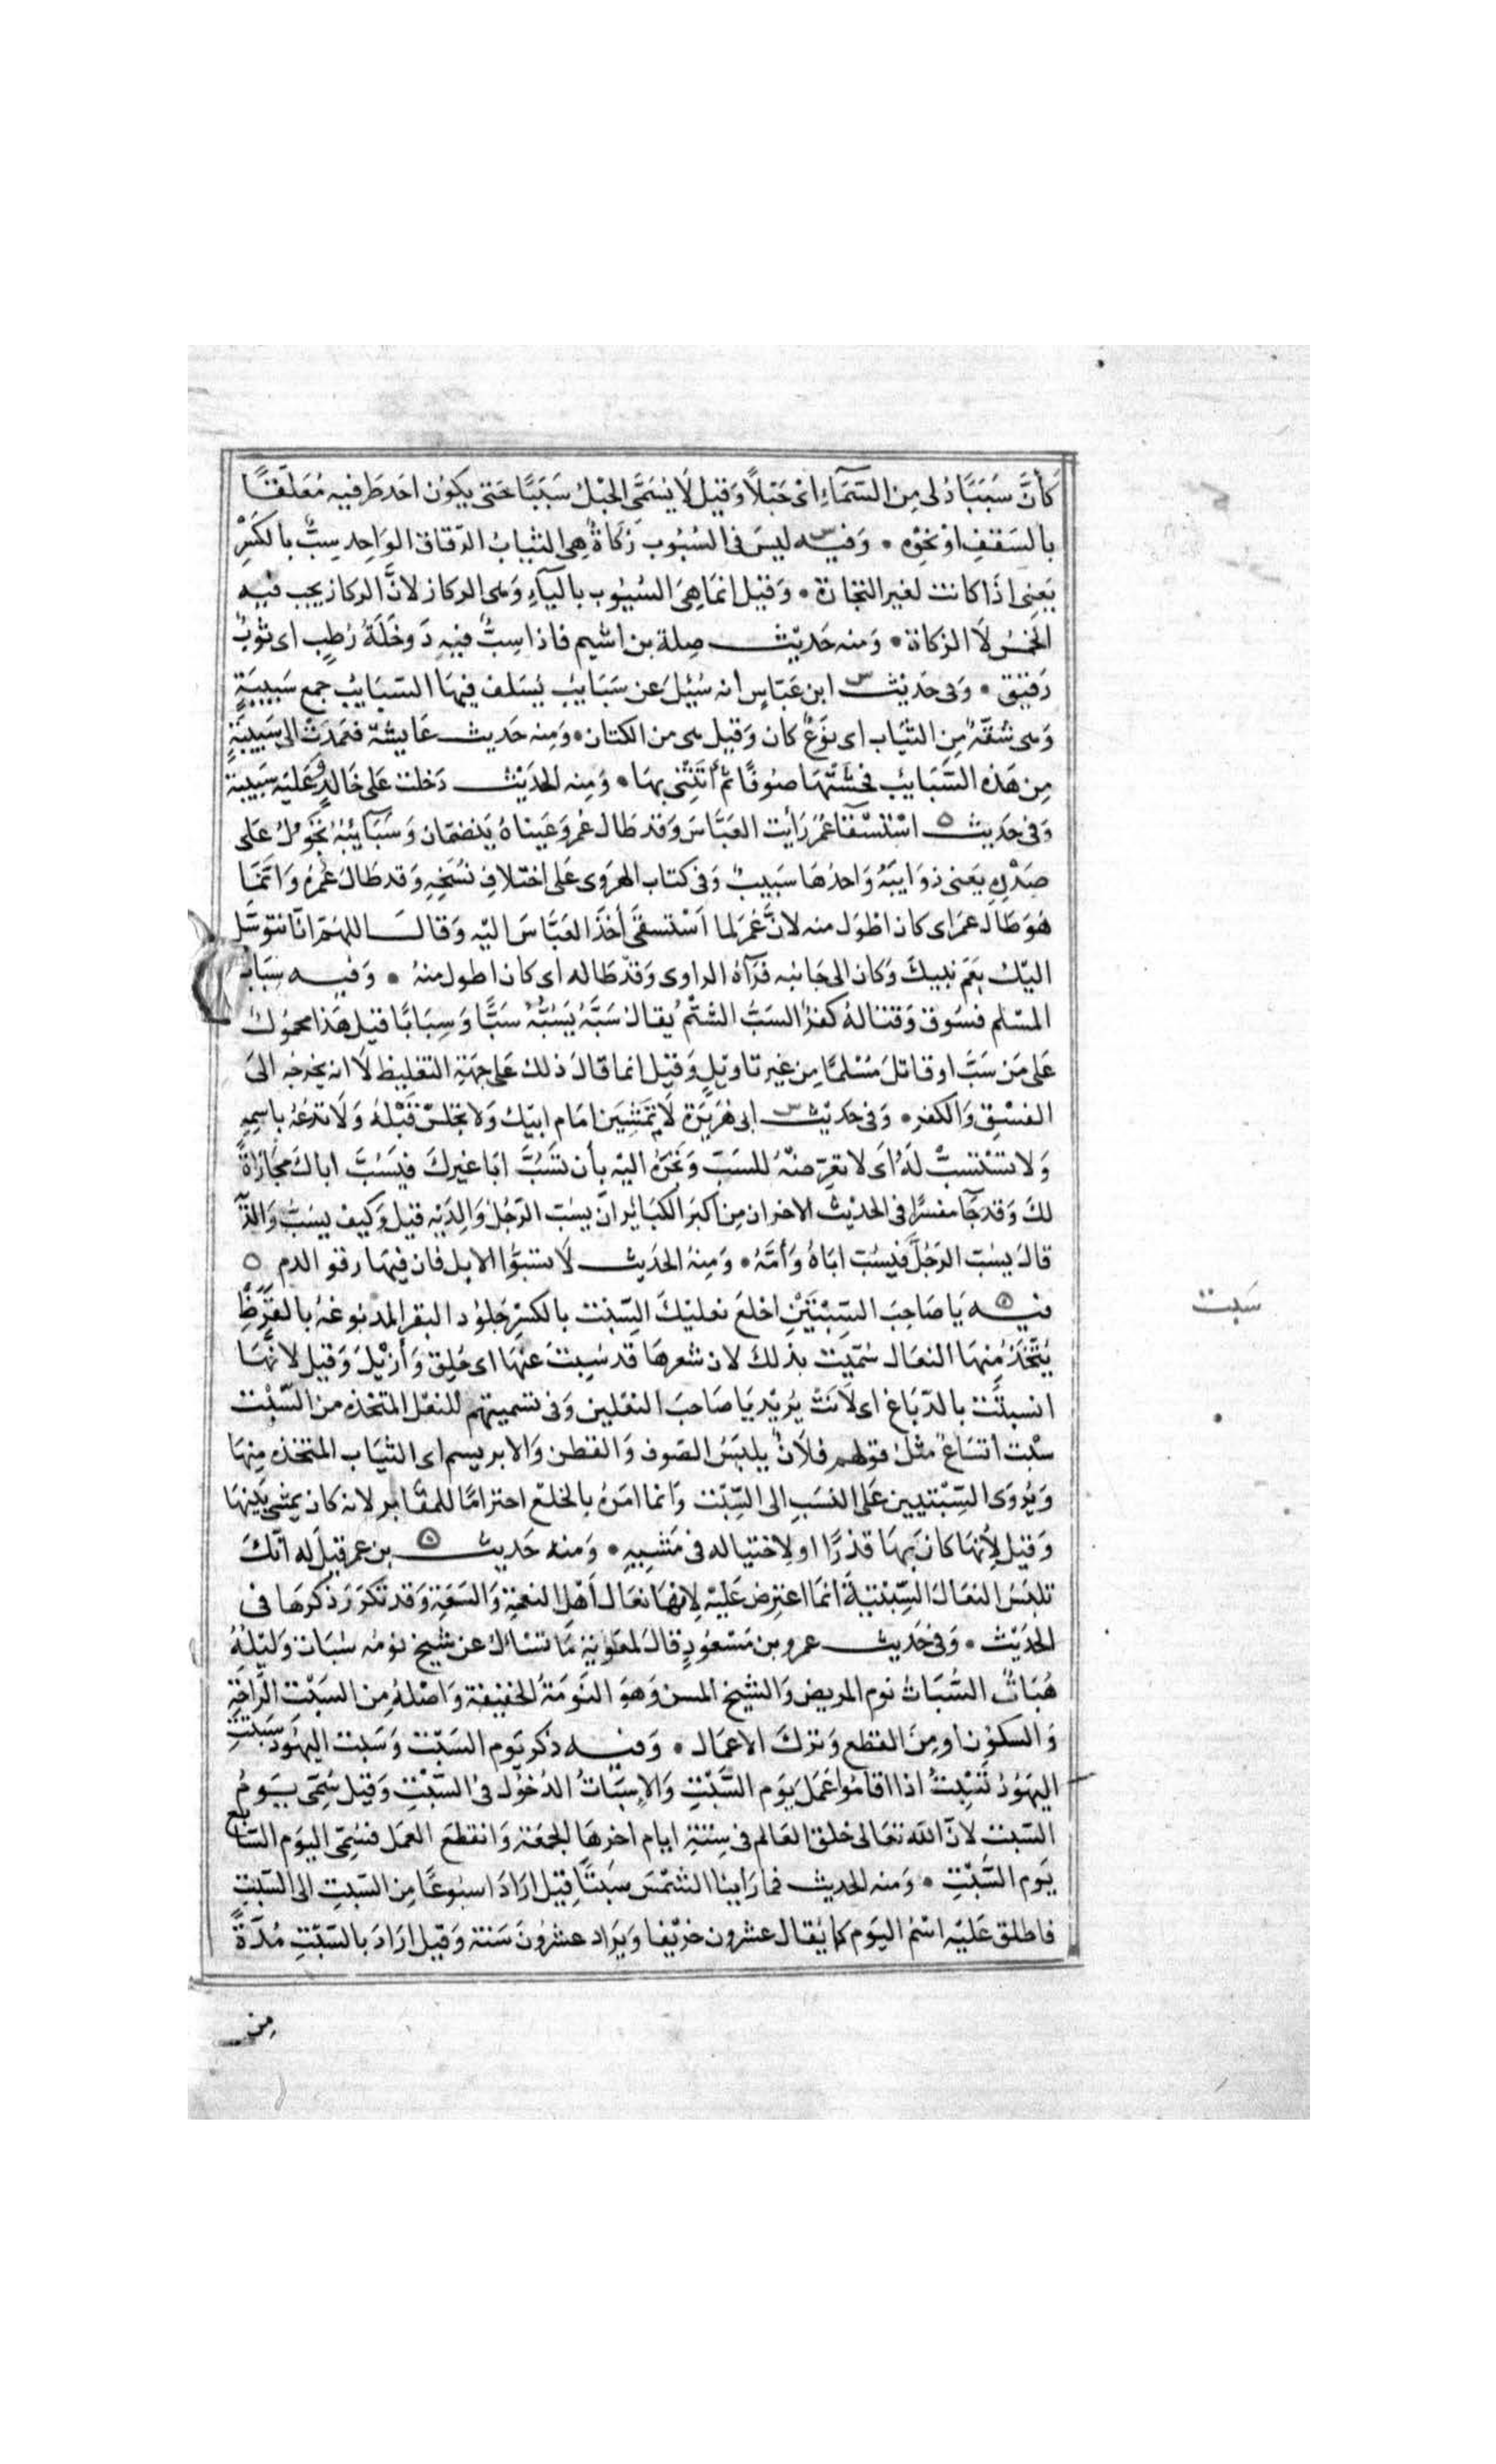 كَأَنَّ سَبَبًا دُلى مِن السَّمَآءِ اىْ حَبْلاً وَقيْل لَا يُسَمَّى الحَبْلُ سَبَبًا حَتى يكوُن احَد طَرفيْه مُعَلَّقًا
بالسَقفِ اوْ نَحْوِه • وَفيـــه ليسَ فى السُبُوب زَكَاةٌ هِى الثيَابُ الرّقاق الوَاحِد سِبٌّ بالكَسْرِ
يَعْنِى اذَا كانت لغير التجَارة • وَقيْل انمَا هِىَ السُيُوب باليَآءِ وَهى الركاز لانَّ الركاز يجب فيْه
الخمسُ لَا الزكاة • وَمنه حَديْثـــ صِلة بن اشيم فاذا سِبٌّ فيْهِ دَوخَلَةُ رُطَبٍ اى ثوْبٌ
رَقيْق • وَفى حَديْث ابن عَبّاسٍ انه سُئِلَ عَن سَبَايِبَ يُسَلف فيْهَا السّبَايِبُ جمع سَبيبَةٍ
وَهى شُقّةٌ مِنَ الثيَاب اى نَوْعٍ كان وَقيْل هى من الكتان • وَمِنه حَديث عَايشَة فعَمَدَتْ الى سَبيْبَةٍ
مِن هَذه السَّبَايِب فحَشَتْهَا صُوفًا ثمّ أتَتْنى بهَا • وَمِنه الحَديْثـــ دَخلت عَلى خَالدٍ وَعَليْه سَبيْبَة
وَفى حَديث اسْتسْقآءِ عُمَرَ رَأيت العَبَّاسَ وَقد طَال عُمَر وَعَيناهُ يَنضمَان وَسَبَايبُهُ تَجُوْلُ عَلى
صَدْرِه يَعنى ذوَايبَهُ وَاحدُهَا سَبيبٌ وَفى كتاب الهروى عَلى اختلافِ نُسَخِهِ وَقد طَالَ عُمْرُهُ وَانمَا
هُوَ طَال عمَرَ اى كان اطْوَل منه لانَّ عُمَرَ لما اسْتسقَى أخَذ العَبَّاسَ اليْه وَقالـــ اللهمّ انّا نتوسَّل
اليْك بعَم نَبيكَ وَكان الى جَانبه فرَآهُ الراوى وَقدْ طَاله اى كان اطول منهُ • وَفيـــه سِبَابُ
المسْلم فسُوق وَقتالهُ كفرٌ السَبُّ الشتْمُ يُقال سَبَّهُ يَسُبُّهُ سَبًّا وَسِبَابًا قيل هَذا محموُلٌ
عَلى مَن سَبَّ او قاتلَ مُسْلمًا مِن غير تاويْلٍ وَقيْل انما قالَ ذلك عَلى جهَةِ التغليظ لَا انه يخرجه الىَ
الفسْق وَالكفر • وَفى حَديْثـــ ابى هُرَيْرَة لَا تمْشيَنَّ امَام ابيْك وَلا تجْلسْ قبْلهُ وَلَا تدْعُهُ باسِمِهِ
وَلا تسْتسِبَّ لهُ اىْ لا تعَرِّضهُ للسَبّ وَتَجُرُّهُ اليْه بأن تَسُبَّ ابَا غيرك فيَسُبَّ اباكَ مجَازاةً
لكَ وَقد جَآ مفسرًا فى الحَديْث الاخر ان مِن اكبر الكبَائر انْ يسُبّ الرّجُل وَالديْهِ قيْل وَكيف يسُبّ وَالدَيْهِ
قالَ يسُبّ الرّجُلَ فيَسُبّ ابَاهُ وَأمَّهُ • وَمِنهُ الحَديثـــ لَا تسُبُّوا الابل فان فيْهَا رقو الدم ٥
فيـــه يَا صَاحبَ السّبْتَيْن اخلَع نعليْكَ السِّبْت بالكَسْرِ جلوُد البقر المدبوغةُ بالقَرَظِ
يُتَّخَذ مِنهَا النعَال سُمّيَت بذلكَ لان شعرهَا قد سُبِتَ عنهَا اى حُلِق وَأُزيْلَ وَقيْل لانّهَا
انسبتَت بالدّبَاغ اى لَانَتْ يُريْد يَا صَاحبَ النعْلين وَفى تسميتهم للنعْل المتخذه من السّبْت
سبْت اتسَاعٌ مثلُ قولهم فلَانٌ يلبَسُ الصّوف وَالقطن وَالابريسم اى الثيَاب المتخذه مِنهَا
وَيُروَى السِّبْتيين عَلى النسَب الى السِّبْت وَانما امَرهُ بالخلع احترامًا للمقَابر لانه كان يمشى بَيْنهَا
وَقيْل لأنهَا كان بهَا قذرًا او لِاختياله فى مَشيِهِ • وَمنه حَديثـــ بن عمر قيْل له انّكَ
تلبَسُ النعَال السِّبْتيَّةَ انمَا اعترضَ عَليْه لانهَا نعَال أهْل النعمَةِ وَالسَعَةِ وَقد تكرّرَ ذكرهَا فى
الحديْث • وَفى حَديثـــ عمرو بن مَسْعُودٍ قالَ لمعَاويَة مَا تسْأل عن شيخ نومُه سُبَات وَليْلهُ
هُبَاتٌ السُّبَاتُ نوم المريض وَالشيخ المسن وَهوَ النَوْمَةُ الخفيْفة وَاصْلهُ مِن السَبْت الرّاحَة
وَالسكوُن او مِنَ القطع وَترْكَ الاعمَال • وَفيـــه ذكر يَوم السّبْت وَسَبت اليهُود سَبَتَتِ
اليهُودُ تَسْبِتُ اذا اقامُوا عَمَل يَوم السَّبْتِ وَالاِسْبَاتُ الدُخُول فىْ السّبْتِ وَقيْل سُمّى يـــوْمُ
السّبت لانّ الله تعَالى خلقَ العَالم فى سِتةِ ايام اخرهَا الجمعَة وَانقطعَ العَمل فسُمّى اليوَم السَّابع
يَوم السَّبْتِ • وَمنه الحَديث فما رَاينا الشمْسَ سَبْتًا قيْل ارَادَ اسبُوعًا مِن السّبتِ الى السّبْتِ
فاطلق عَليْه اسْمُ اليَوم كما يُقال عشرون خرْيفا وَيرَاد عشرُونَ سَنة وَقيْل ارَادَ بالسّبْتِ مُدّةً
سَبت
مِن